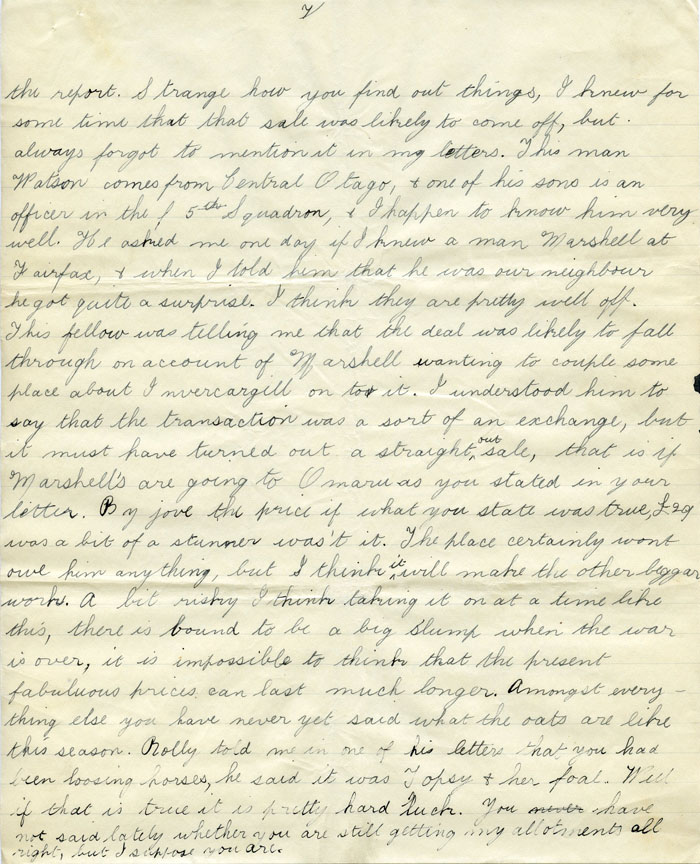 7/
the report. Strange how you find out things, I knew for
some time that that sale was likely to come off, but
always forgot to mention it in my letters. This man
Watson comes from Central Otago, & one of his sons is an
officer in the 5th Squadron, & I happen to know him very
well. He asked me one day if I knew a man Marshell at
Fairfax, & when I told him that he was our neighbour
he got quite a surprise. I think they are pretty well off.
This fellow was telling me that the deal was likely to fall
through on account of Marshell wanting to couple some
place about Invercargill on to it. I understood him to
say that the transaction was a sort of an exchange, but
it must have turned out a straight out sale, that is if
Marshell's are going to Omaru as you stated in your
letter. By jove the price if what you state was true, £29
was a bit of a stunner was't it. The place certainly wont
owe him anything, but I think it will make the other beggar
work. A bit risky I think taking it on at a time like
this, there is bound to be a big slump when the war
is over, it is impossible to think that the present
fabuluous prices can last much longer. Amongst every-
thing else you have never yet said what the oats are like
this season. Rolly told me in one of his letters that you had
been loosing horses, he said it was Topsy & her foal. Well
if that is true it is pretty hard luck. You never have
not said lately whether you are still getting my allotments all
right, but I suppose you are.